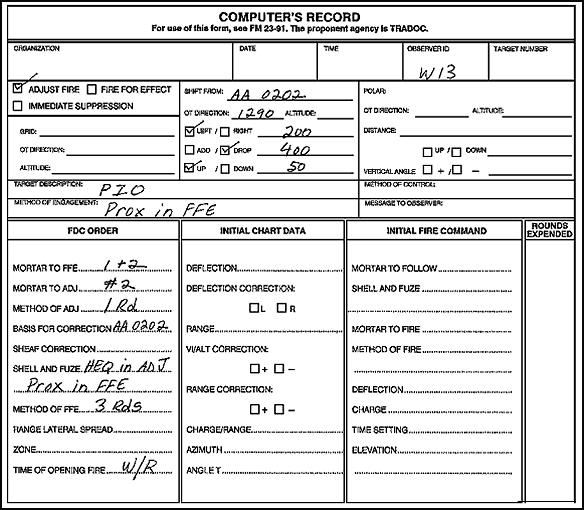 COMPUTER'S RECORD
For use of this form, see FM 23-91. The proponent agency is TRADOC.
ORGANIZATION DATE TIME OBSERVER ID TARGET NUMBER
W13
ADJUST FIRE FIRE FOR EFFECT
IMMEDIATE SUPPRESSION
GRID:
OT DIRECTION:
ALTITUDE:
SHIFT FROM: AA 0202
OT DIRECTION: 1290 ALTITUDE:
LEFT / RIGHT 200
ADD / DROP 400
UP / DOWN 50
POLAR:
OT DIRECTION: ALTITUDE:
DISTANCE:
UP / DOWN
VERTICAL ANGLE + / -
TARGET DESCRIPTION: PIO
METHOD OF CONTROL:
METHOD OF ENGAGEMENT: Prox in FFE
MESSAGE TO OBSERVER:
FDC ORDER
MORTAR TO FFE 1+2
MORTAR TO ADJ #2
METHOD OF ADJ 1 Rd
BASIS FOR CORRECTION AA 0202
SHEAF CORRECTION
SHELL AND FUZE HEQ in ADJ
Prox in FFE
METHOD OF FFE 3 Rds
RANGE LATERAL SPREAD
ZONE
TIME OF OPENING FIRE W/R
INITIAL CHART DATA
DEFLECTION
DEFLECTION CORRECTION:
L R
RANGE
VI/ALT CORRECTION:
+ -
RANGE CORRECTION:
+ -
CHARGE/RANGE
AZIMUTH
ANGLE T
INITIAL FIRE COMMAND
MORTAR TO FOLLOW
SHELL AND FUZE
MORTAR TO FIRE
METHOD OF FIRE
DEFLECTION
CHARGE
TIME SETTING
ELEVATION
ROUNDS
EXPENDED